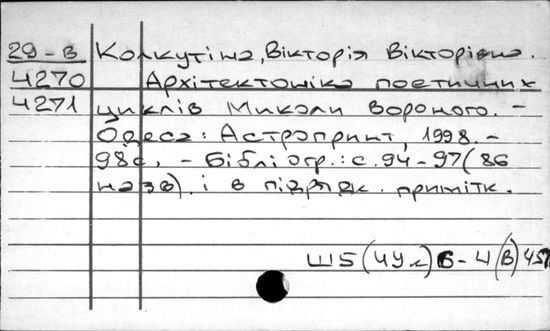 29-В Колкутіна, Вікторія Вікторівна.
4270 Архітектоніка поетичних
4271 циклів Миколи Вороного. -
Одеса: Астропринт, 1998. -
98с. - Бібліогр.: с. 94-97 (86
назв). і в підряд. примітк.
Ш5(4Ук)6-4(В)45